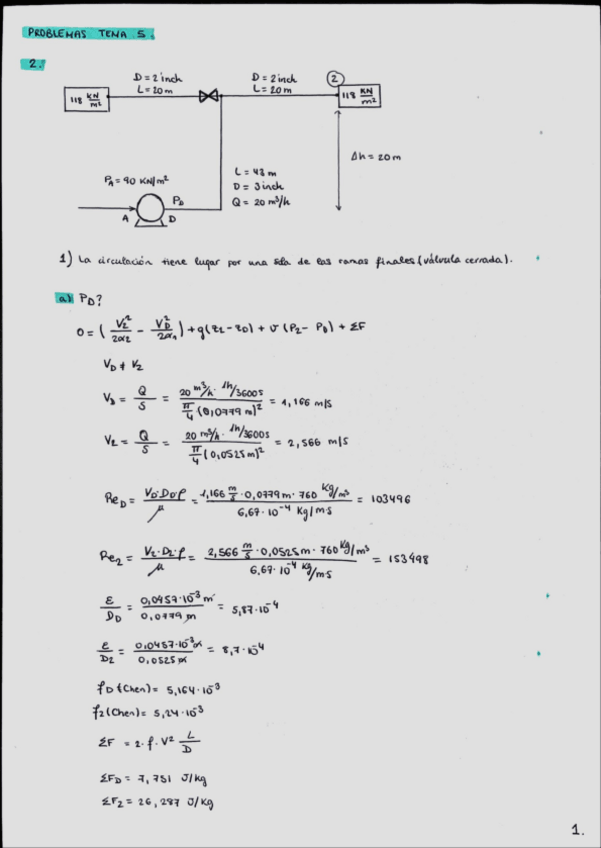 PROBLEMAS TEMA 5.
2.
D = 2 inch
L = 20 m
D = 2 inch
L = 20 m
2
118 KN/m²
118 KN/m²
Δh = 20 m
L = 43 m
D = 3 inch
Q = 20 m³/h
PA = 90 KN/m²
PD
A
D
1) La circulación tiene lugar por una sola de las ramas finales (válvula cerrada).
a) PD?
0 = (V2²/2α2 - VD²/2α1) + g(z2-z0) + v (P2 - PD) + ΣF
VD ≠ V2
VD = Q/S = 20 m³/h · 1h/3600s / π/4 (0,0779 m)² = 1,166 m/s
V2 = Q/S = 20 m³/h · 1h/3600s / π/4 (0,0525 m)² = 2,566 m/s
ReD = VD·DD·ρ/μ = 1,166 m/s · 0,0779 m · 760 Kg/m³ / 6,67·10⁻⁴ Kg/m·s = 103496
Re2 = V2·D2·ρ/μ = 2,566 m/s · 0,0525 m · 760 Kg/m³ / 6,67·10⁻⁴ Kg/m·s = 153498
ε/DD = 0,0457·10⁻³ m / 0,0779 m = 5,87·10⁻⁴
ε/D2 = 0,0457·10⁻³ m / 0,0525 m = 8,7·10⁻⁴
fD (Chen) = 5,164·10⁻³
f2 (Chen) = 5,24·10⁻³
ΣF = 2·f·V² L/D
ΣFD = 7,751 J/kg
ΣF2 = 26,287 J/Kg
1.